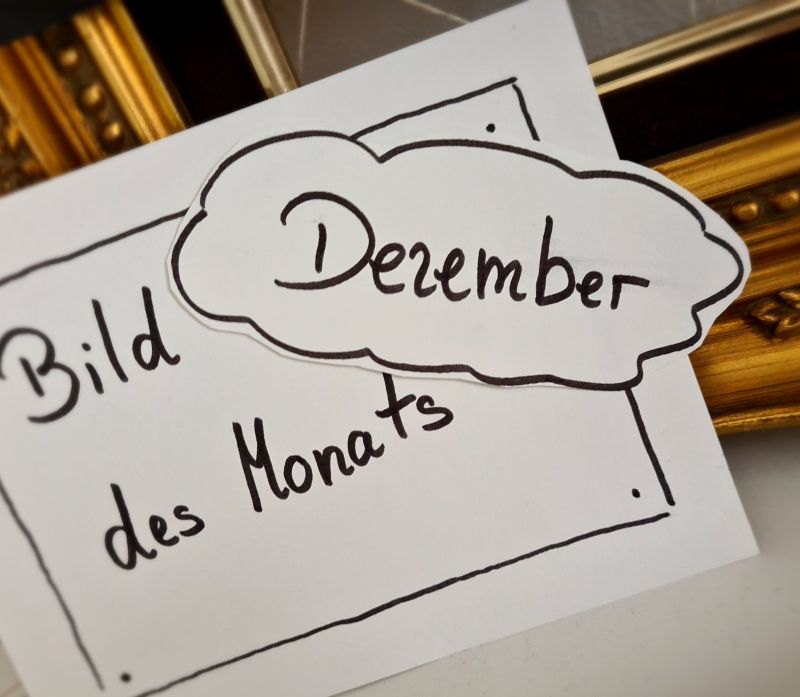 Dezember
Bild
des Monats